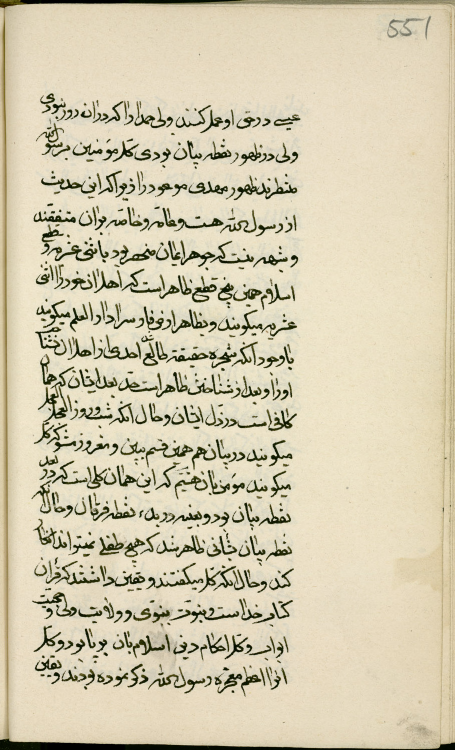 551
عیسی در حق او عمل کنند ولی حمد خدا را که در آن روز نبودی
ولی در ظهور نقطه بیان بودی کل مؤمنین برسول الله
منتظرند ظهور مهدی موعود را زیرا که این حدیث
از رسول الله هست و عامه و خاصه بر آن متفقند
و شبهه نیست که جوهر ایمان منحصر بود باثنی عشریه و
اسلام همین نهج قطع ظاهر است که اهل آن خود را اثنی
عشریه میگویند و بظاهر ارض فا و سر را دار العلم میگویند
با وجود آنکه شجره حقیقت طالع احدی از اهل آن نشناخت
او را و بعد از شناختن ظاهر است حد بعد ایشان که همان
کافی است در ذل ایشان و حال آنکه شب و روز العجل العجل
میگویند در بیان هم همین قسم ببین و مغرور مشو که کل
میگویند مؤمن بآن هستیم که این همان کلی است که در بعد
نقطه بیان بود و نفس در بدء نقطه فرقان و حال آنکه
نقطه بیان بشأنی ظاهر شد که هیچ طفلی نمیتواند انکار
کند و حال آنکه کل میگفتند و یقین داشتند که قرآن
کتاب خدا است و نبوت نبوی و ولایت ولی و حجیت
ابواب و کل احکام دین اسلام بآن برپا بود و کل
آنرا اعظم معجزه رسول الله ذکر نموده بودند و یقین